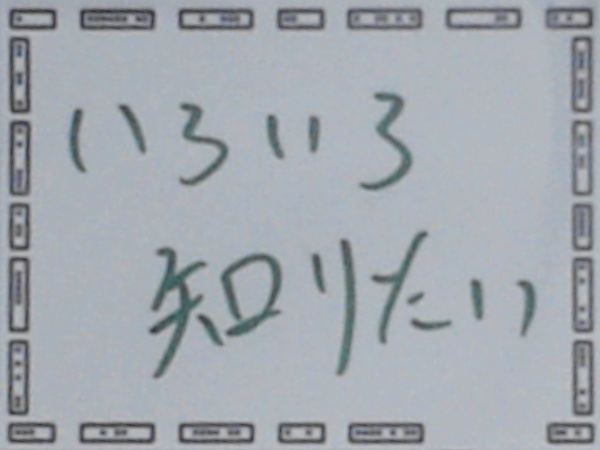 いろいろ
知りたい